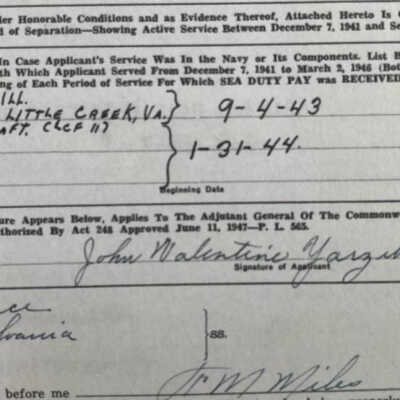 der Honorable Conditions and as Evidence Thereof, Attached Hereto Is
d of Separation—Showing Active Service Between December 7, 1941 and Se
In Case Applicant's Service Was In the Navy or Its Components. List B
th Which Applicant Served From December 7, 1941 to March 2, 1946 (Bot
ng of Each Period of Service For Which SEA DUTY PAY was RECEIVED
ILL.
LITTLE CREEK, VA. 9-4-43
AFT. (LCF 11)
1-31-44.
Beginning Date
ure Appears Below, Applies To The Adjutant General Of The Commonw
uthorised By Act 248 Approved June 11, 1947—P. L. 565.
John Valentine
Signature of Applicant
lvania
ss.
before me M Miles